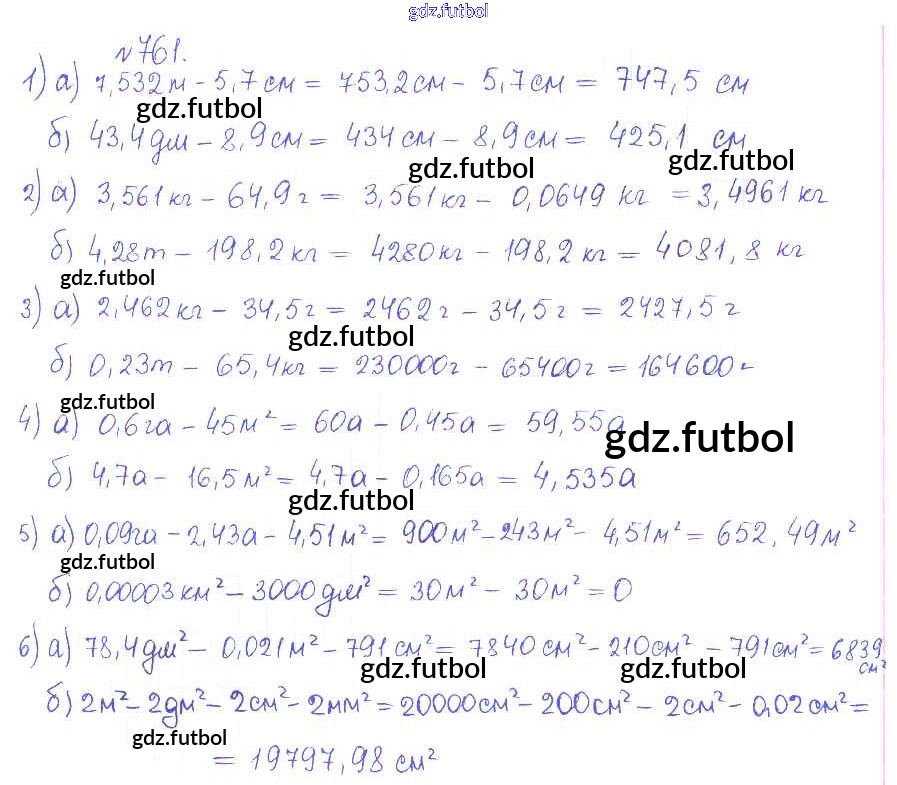 gdz.futbol
№761.
1) а) 7,532 м - 5,7 см = 753,2 см - 5,7 см = 747,5 см
gdz.futbol
б) 43,4 дм - 8,9 см = 434 см - 8,9 см = 425,1 см
gdz.futbol gdz.futbol
2) а) 3,561 кг - 64,9 г = 3,561 кг - 0,0649 кг = 3,4961 кг
б) 4,28 т - 198,2 кг = 4280 кг - 198,2 кг = 4081,8 кг
gdz.futbol
3) а) 2,462 кг - 34,5 г = 2462 г - 34,5 г = 2427,5 г
gdz.futbol
б) 0,23 т - 65,4 кг = 230000 г - 65400 г = 164600 г
gdz.futbol
4) а) 0,6 га - 45 м² = 60 а - 0,45 а = 59,55 а
gdz.futbol
б) 4,7 а - 16,5 м² = 4,7 а - 0,165 а = 4,535 а
gdz.futbol
5) а) 0,09 га - 2,43 а - 4,51 м² = 900 м² - 243 м² - 4,51 м² = 652,49 м²
gdz.futbol
б) 0,00003 км² - 3000 дм² = 30 м² - 30 м² = 0
6) а) 78,4 дм² - 0,021 м² - 791 см² = 7840 см² - 210 см² - 791 см² = 6839 см²
gdz.futbol gdz.futbol
б) 2 м² - 2 дм² - 2 см² - 2 мм² = 20000 см² - 200 см² - 2 см² - 0,02 см² =
gdz.futbol
= 19797,98 см²